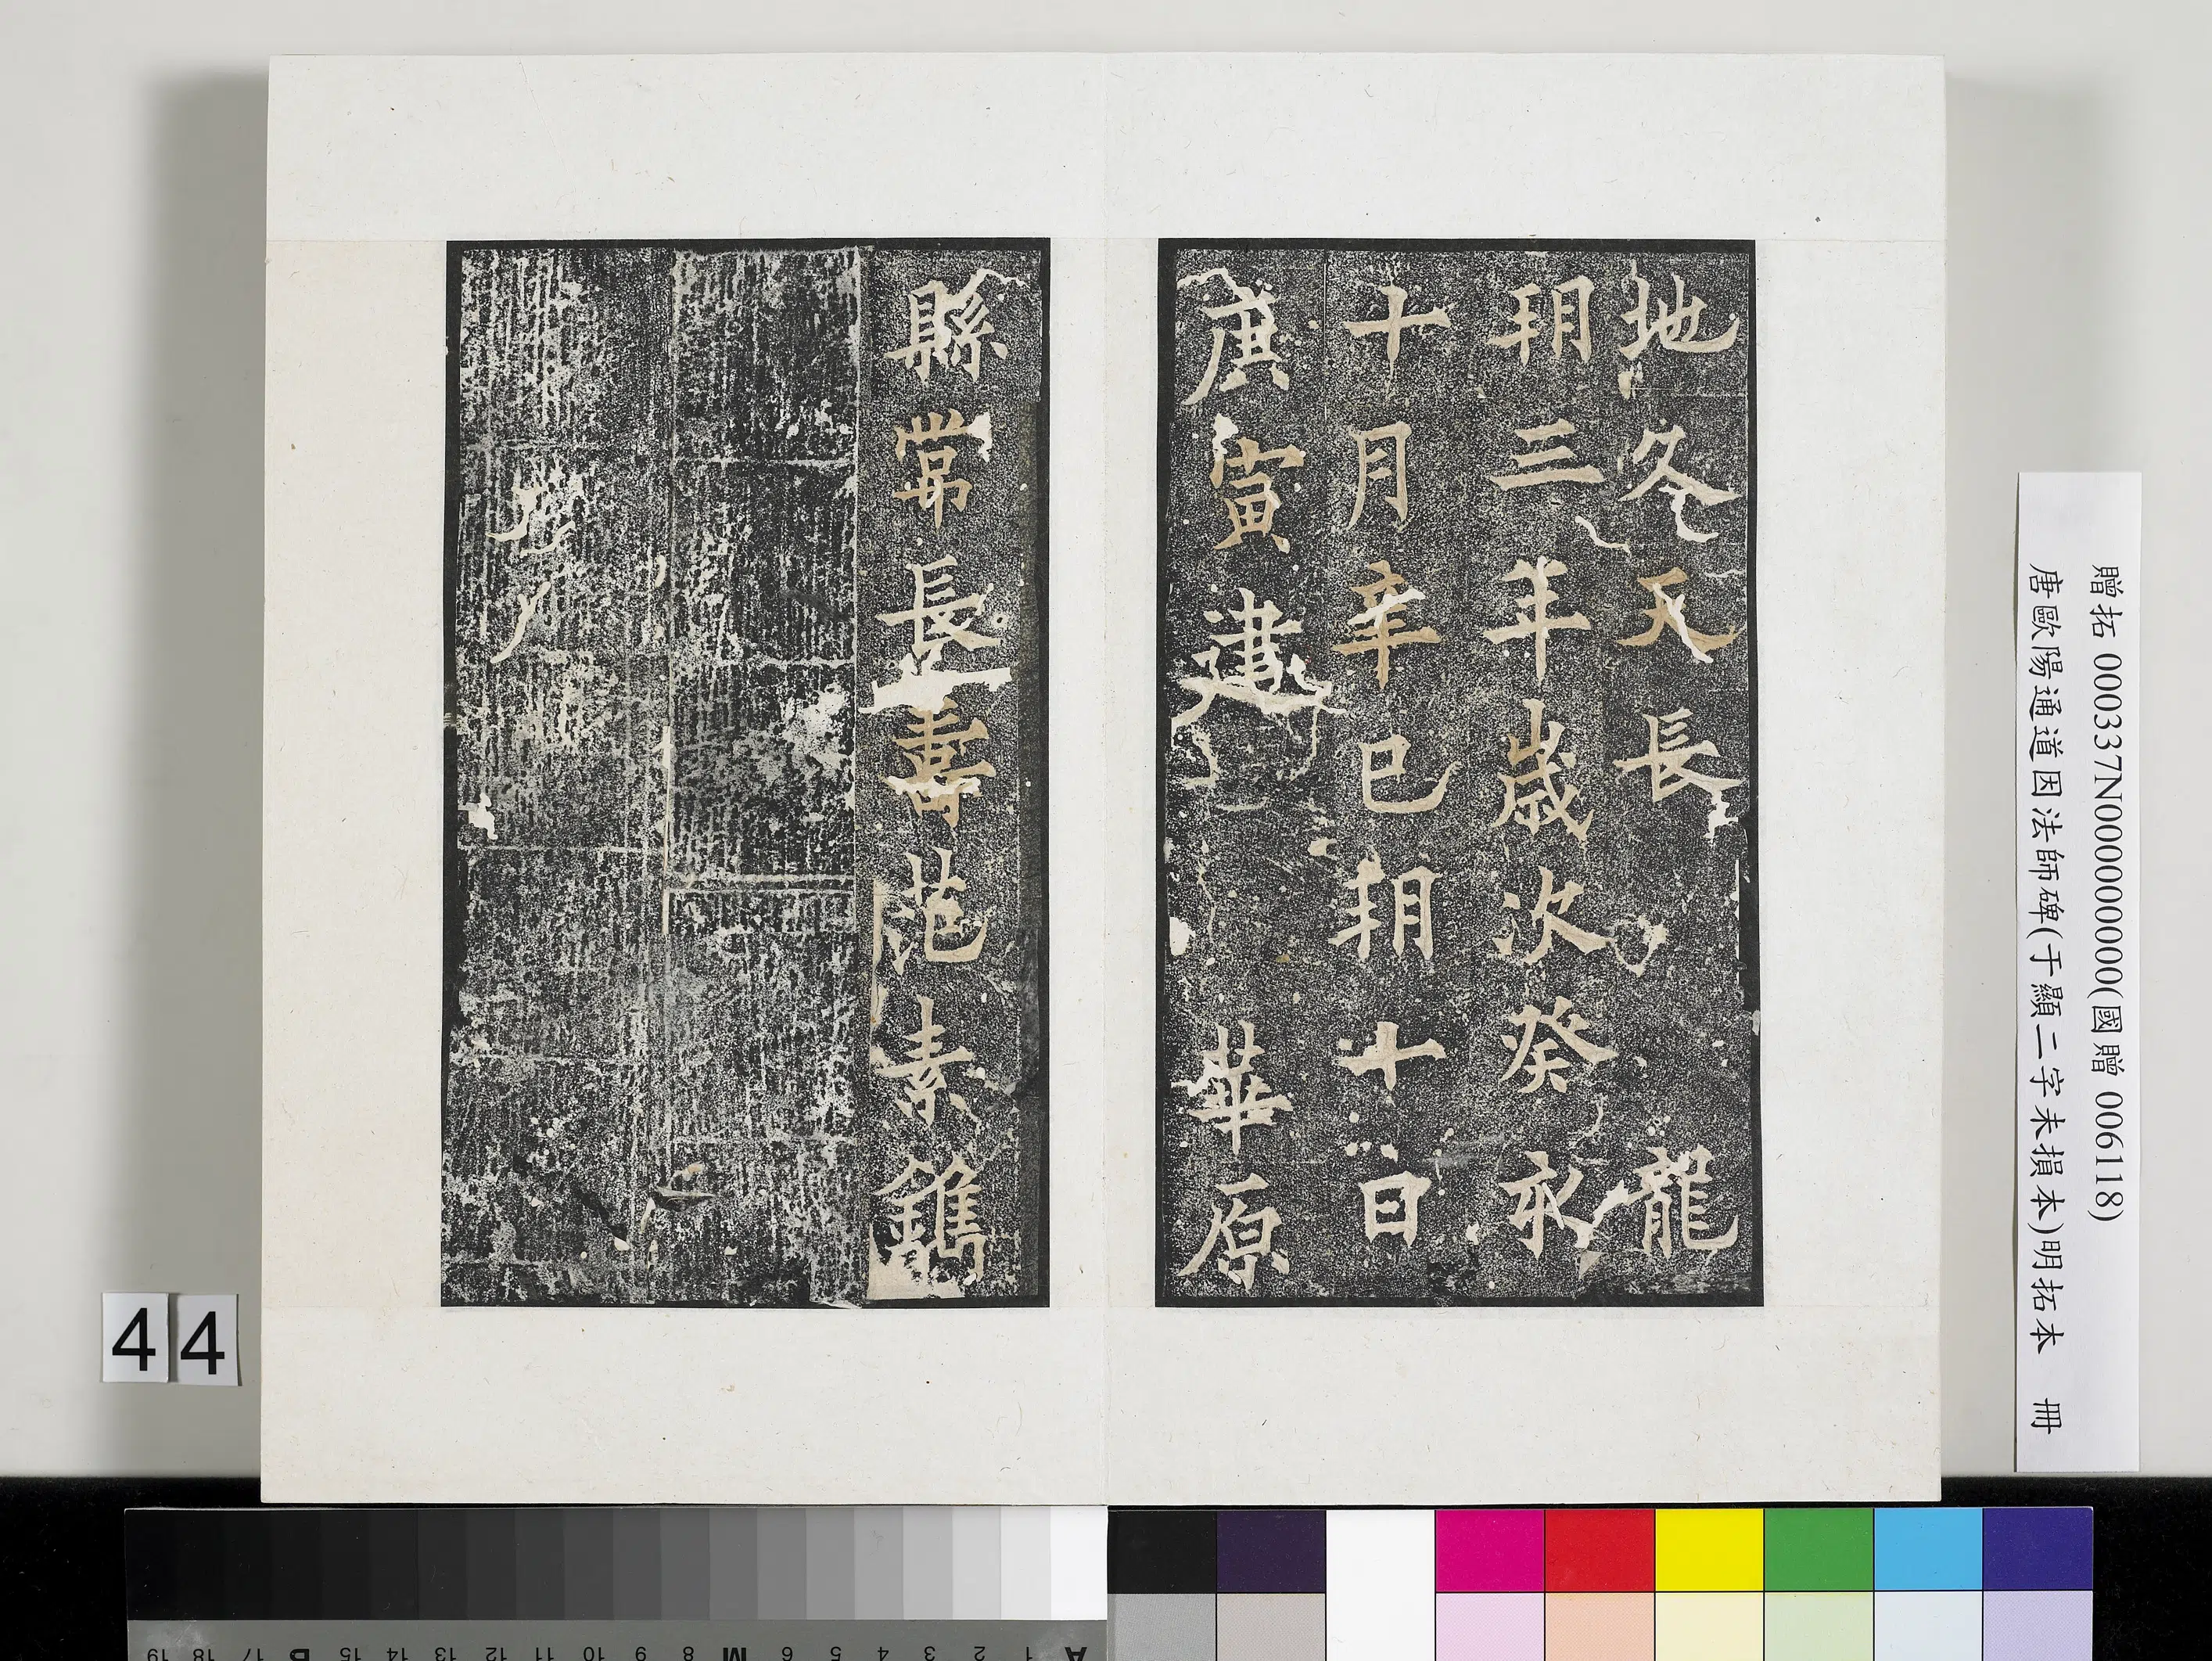 地久天長 龍
朔三年歲次癸亥
十月辛巳朔十日
庚寅建 華原
縣常長壽范素鐫
贈拓 000337N000000000(國贈 006118)
唐歐陽通道因法師碑(于顯二字未損本)明拓本 冊
44
19 18 17 B 15 14 13 12 11 10 9 8 M 7 6 5 4 3 2 1 A